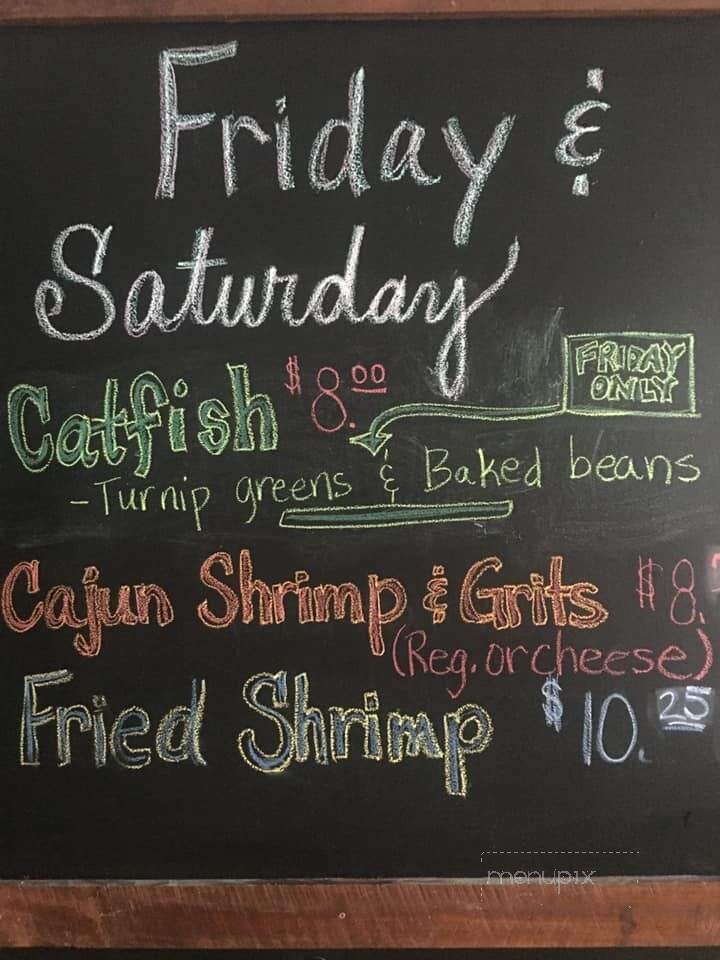 Friday &
Saturday
Catfish $8.00
FRIDAY
ONLY
-Turnip greens & Baked beans
Cajun Shrimp & Grits $8.
(Reg. or cheese)
Fried Shrimp $10.25
menupix